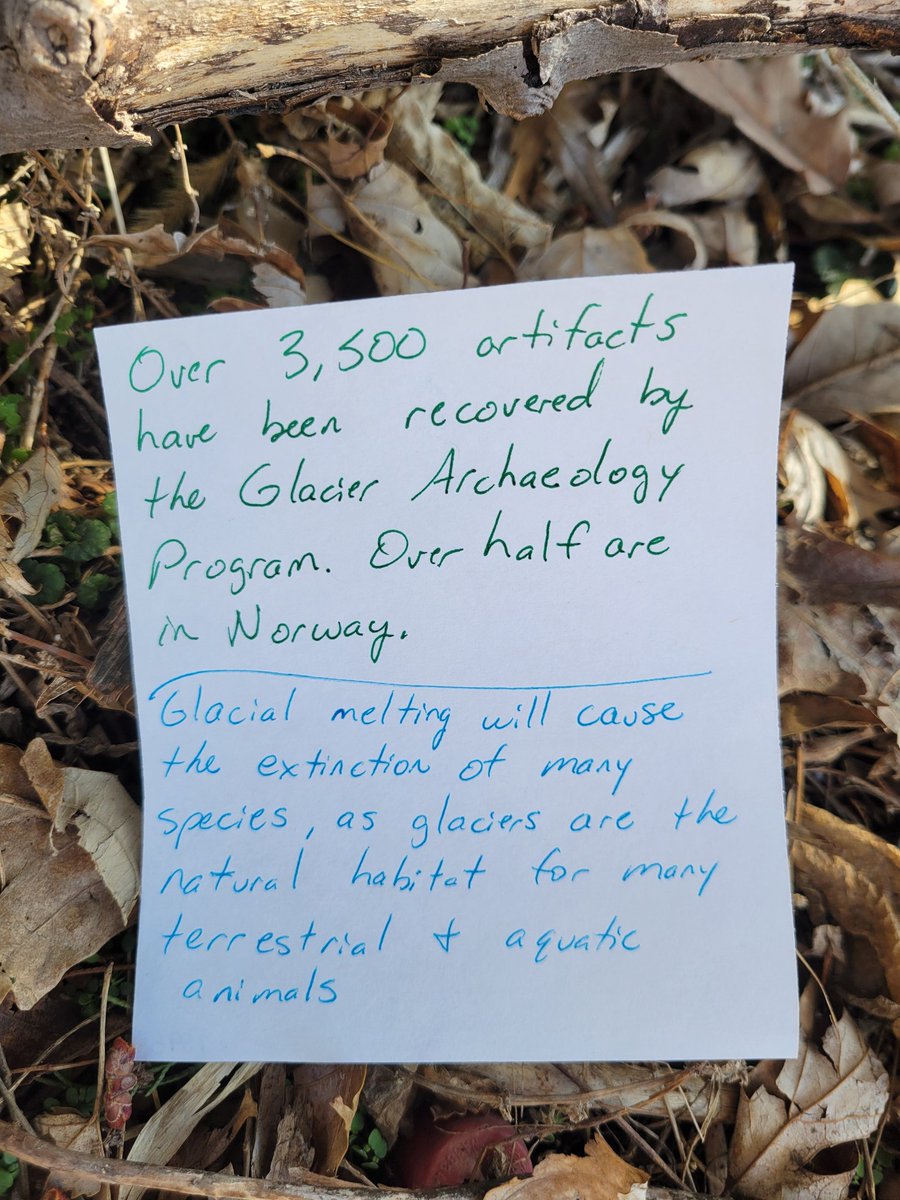 Over 3,500 artifacts
have been recovered by
the Glacier Archaeology
Program. Over half are
in Norway.
Glacial melting will cause
the extinction of many
species, as glaciers are the
natural habitat for many
terrestrial & aquatic
animals